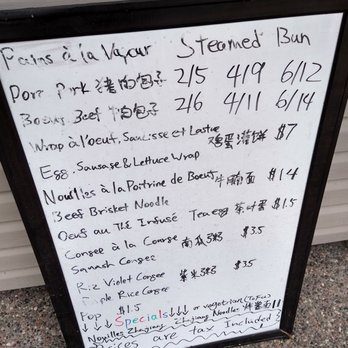 Pains à la Vapeur Steamed Bun
Porc Pork 猪肉包子 2/5 4/9 6/12
Boeuf Beef 牛肉包子 2/6 4/11 6/14
Wrap à l'oeuf, Saucisse et Laitue 鸡蛋 饼 $7
Egg, Sausage & Lettuce Wrap
Nouilles à la Poitrine de Boeuf 牛腩面 $14
Beef Brisket Noodle
Oeuf au Thé Infusé Tea egg 茶叶蛋 $1.5
Congee à la Courge 南瓜粥 $3.5
Squash Congee
Riz Violet Congee $3.5
Purple Rice Congee
Pop $1.5
Specials ↓↓↓ vegetarian (Tofu)
Nouilles Zhajiang Zhajiang Noodles 炸酱面
Prices are tax Included